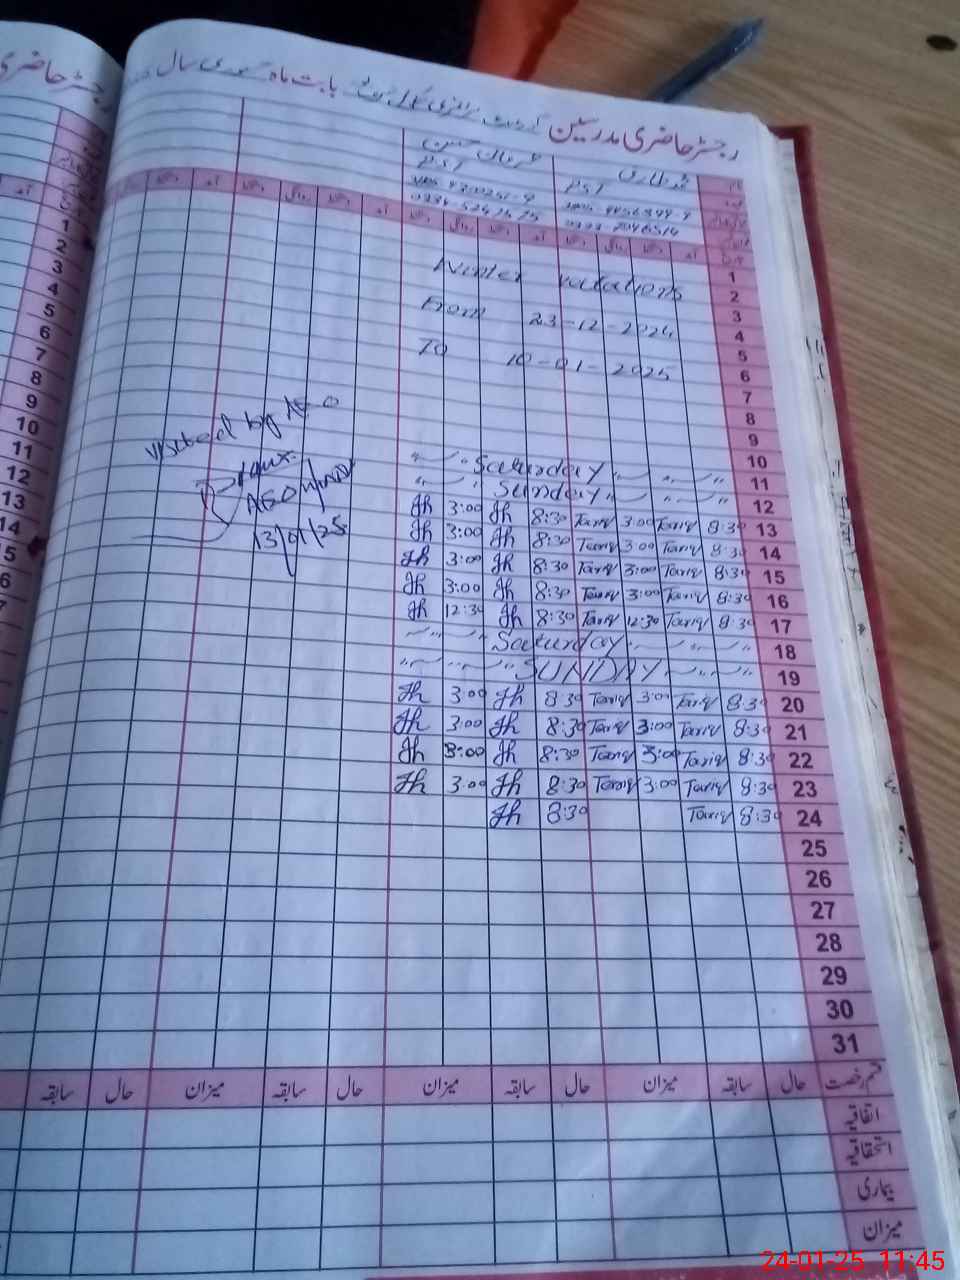 رجسٹر حاضری مدرسین گورنمنٹ پرائمری سکول بابت ماہ جنوری سال
رجسٹر حاضری
PST PST
آمد دستخط روانگی دستخط آمد دستخط روانگی دستخط آمد دستخط روانگی دستخط آمد
1 Winter vacations
2
3 From 23-12-2024
4
5 To 10-01-2025
6
7
8
9
10
11 Saturday
12 Sunday
13 Jh 3:00 Jh 8:30 Tariq 3:00 Tariq 8:30
14 Jh 3:00 Jh 8:30 Tariq 3:00 Tariq 8:30
15 Jh 3:00 Jh 8:30 Tariq 3:00 Tariq 8:30
16 Jh 3:00 Jh 8:30 Tariq 3:00 Tariq 8:30
17 Jh 12:30 Jh 8:30 Tariq 12:30 Tariq 8:30
18 Saturday
19 SUNDAY
20 Jh 3:00 Jh 8:30 Tariq 3:00 Tariq 8:30
21 Jh 3:00 Jh 8:30 Tariq 3:00 Tariq 8:30
22 Jh 3:00 Jh 8:30 Tariq 3:00 Tariq 8:30
23 Jh 3:00 Jh 8:30 Tariq 3:00 Tariq 8:30
24 Jh 8:30 Tariq 8:30
25
26
27
28
29
30
31
visited by AEO
AEO
13/01/25
قسم رخصت حال سابقہ میزان حال سابقہ میزان حال سابقہ میزان حال سابقہ
اتفاقیہ
استحقاقیہ
بیماری
میزان
1
2
3
4
5
6
7
8
9
10
11
12
13
14
24-01-25 11:45